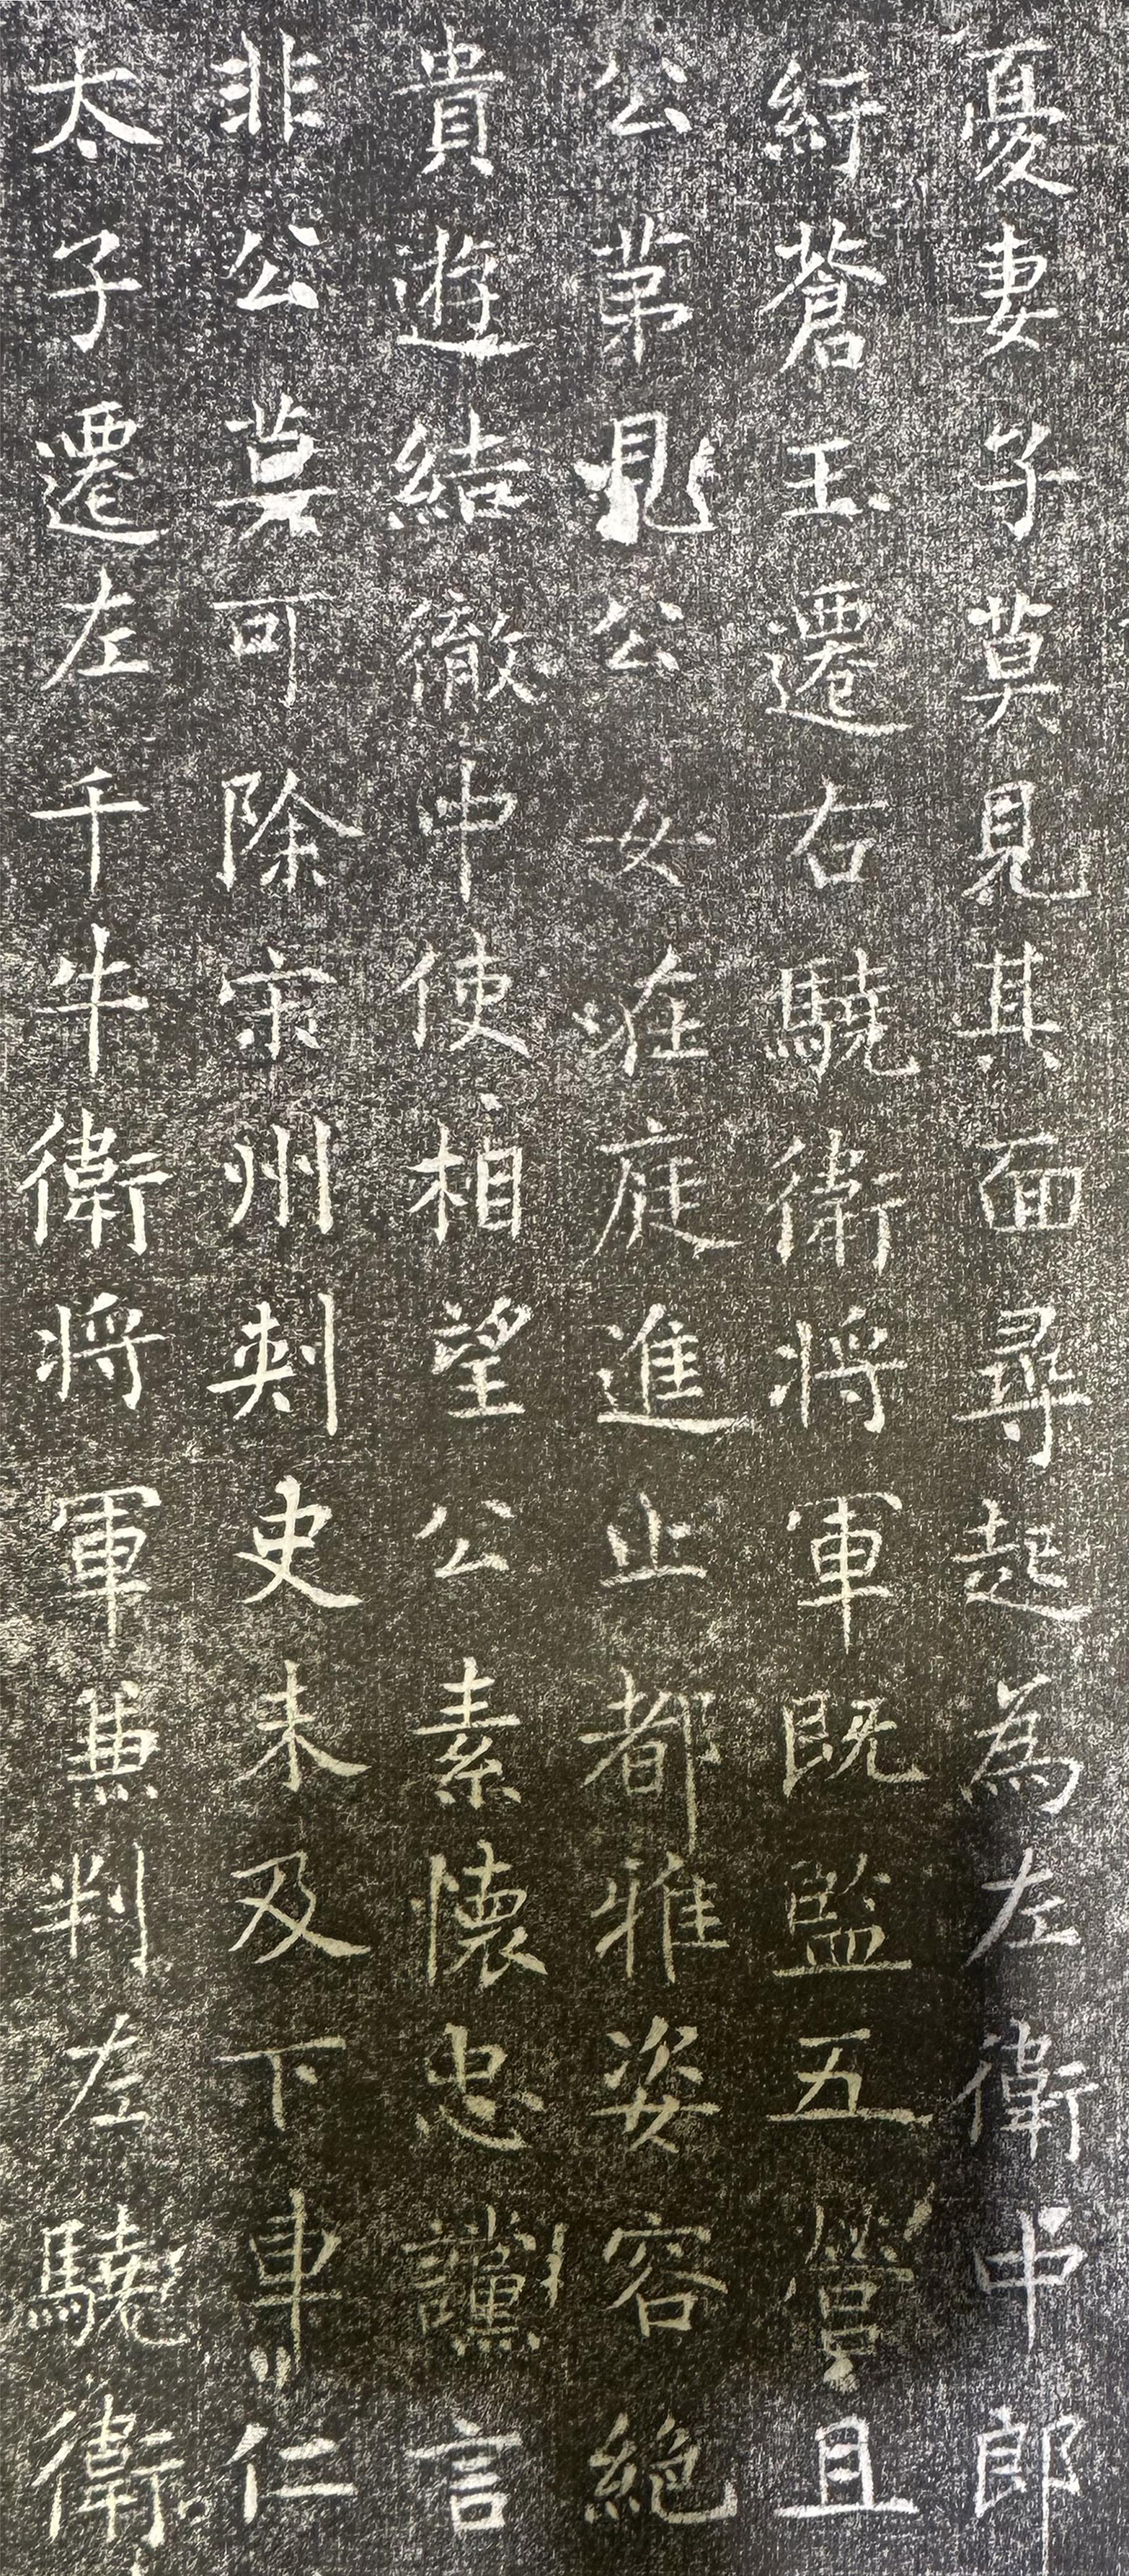 憂妻子莫見其面尋起為左衛中郎
紆蒼玉遷右驍衛将軍既監五營且
公苐見公女在庭進止都雅姿容絕
貴遊結徹中使相望公素懷忠讜言
非公莫可除宋州刾史未及下車仁
太子遷左千牛衛将軍兼判左驍衛